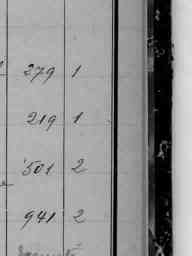 279 1
219 1
501 2
941 2